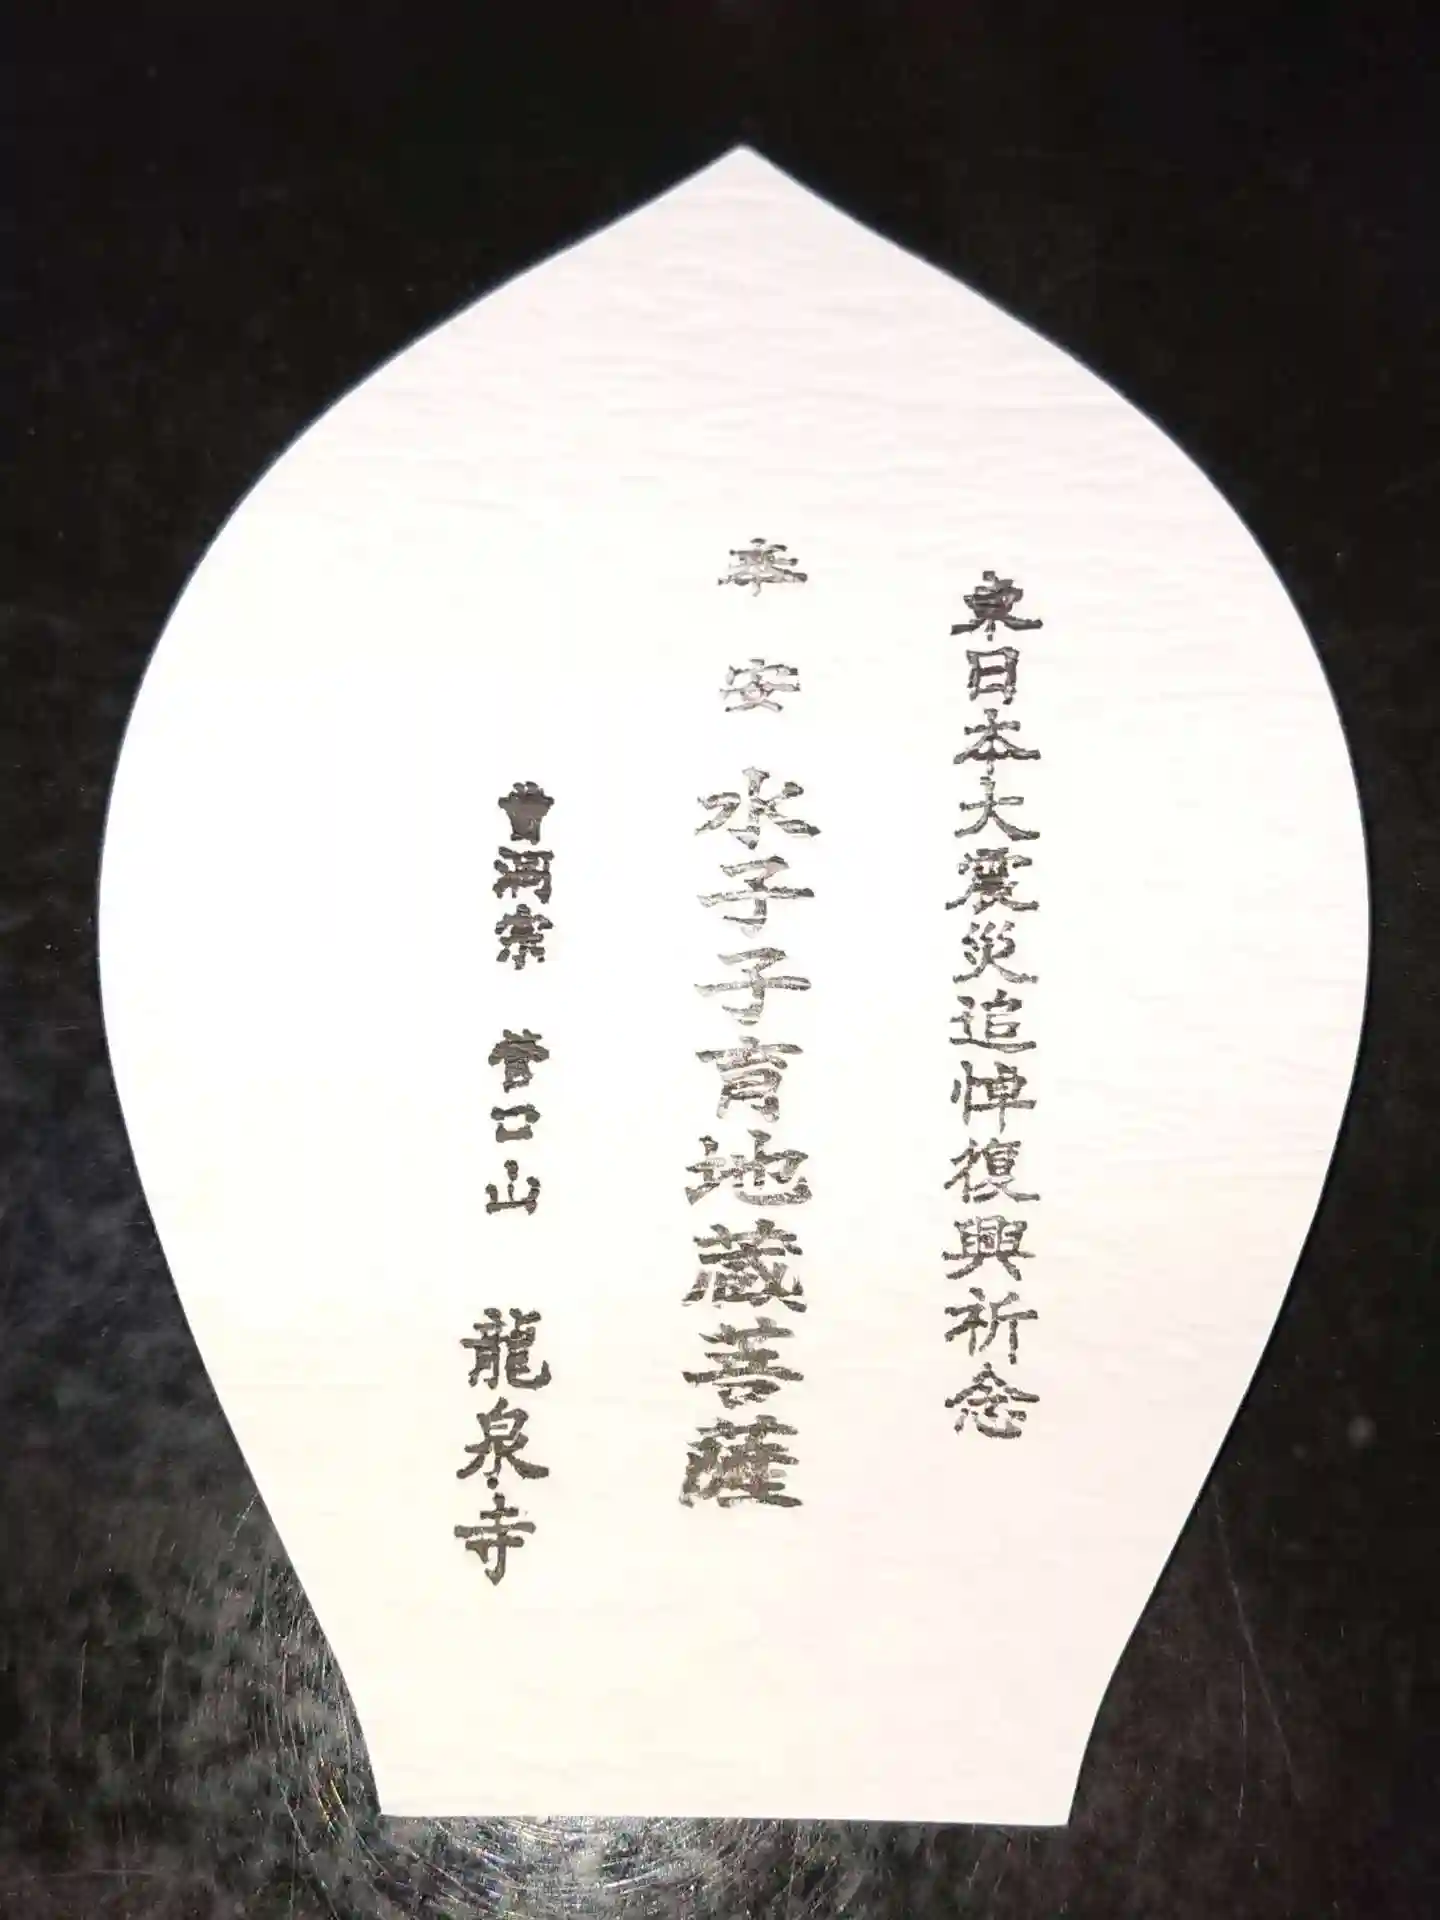 東日本大震災追悼復興祈念
奉安 水子子育地蔵菩薩
曹洞宗 菅口山 龍泉寺